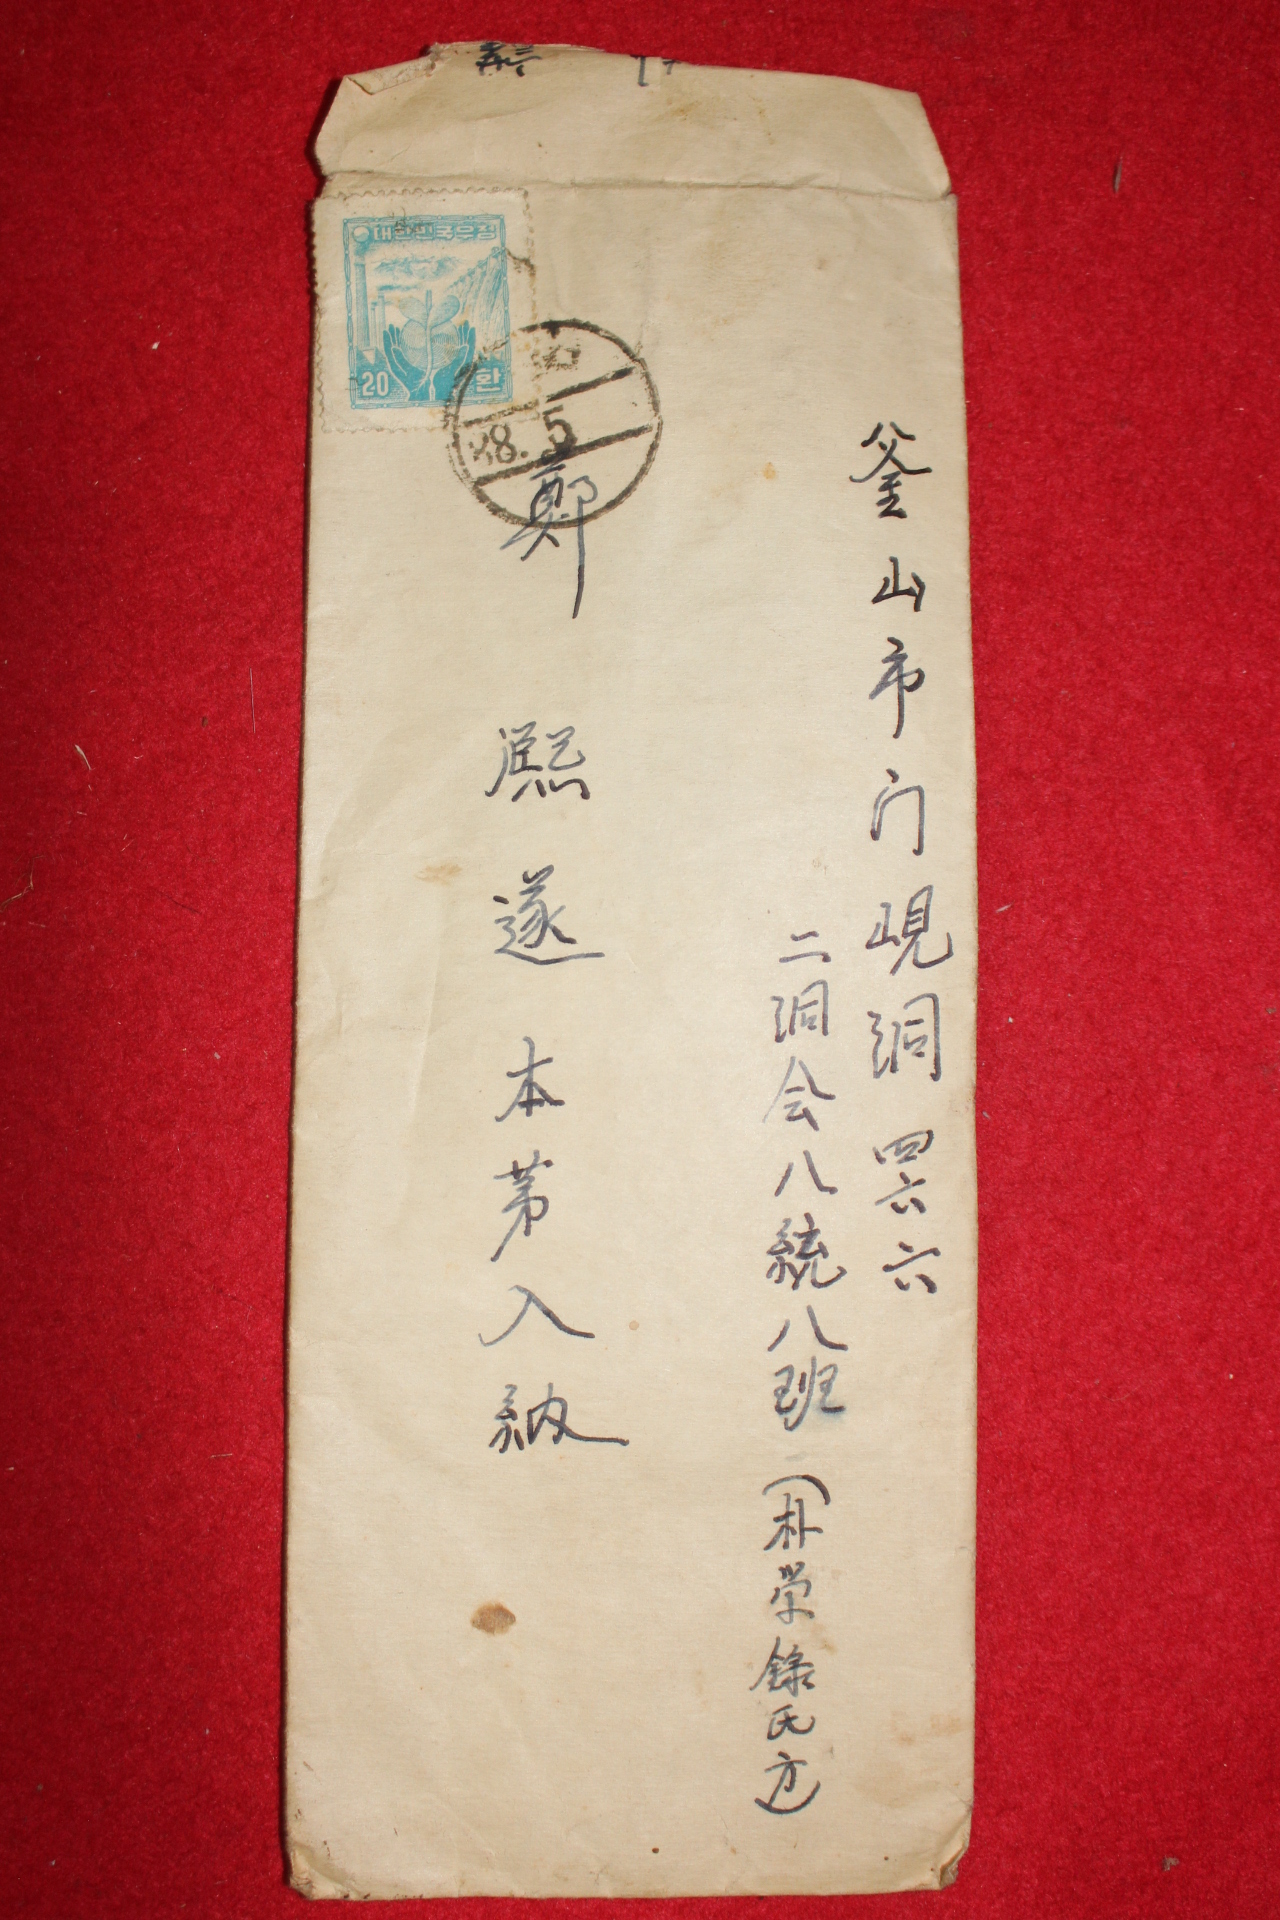 釜山市门峴洞 四六六
二洞会八統八班 (朴栄錄氏方)
鄭熙遂 本第入納
대한민국우정
20 환
88. 5